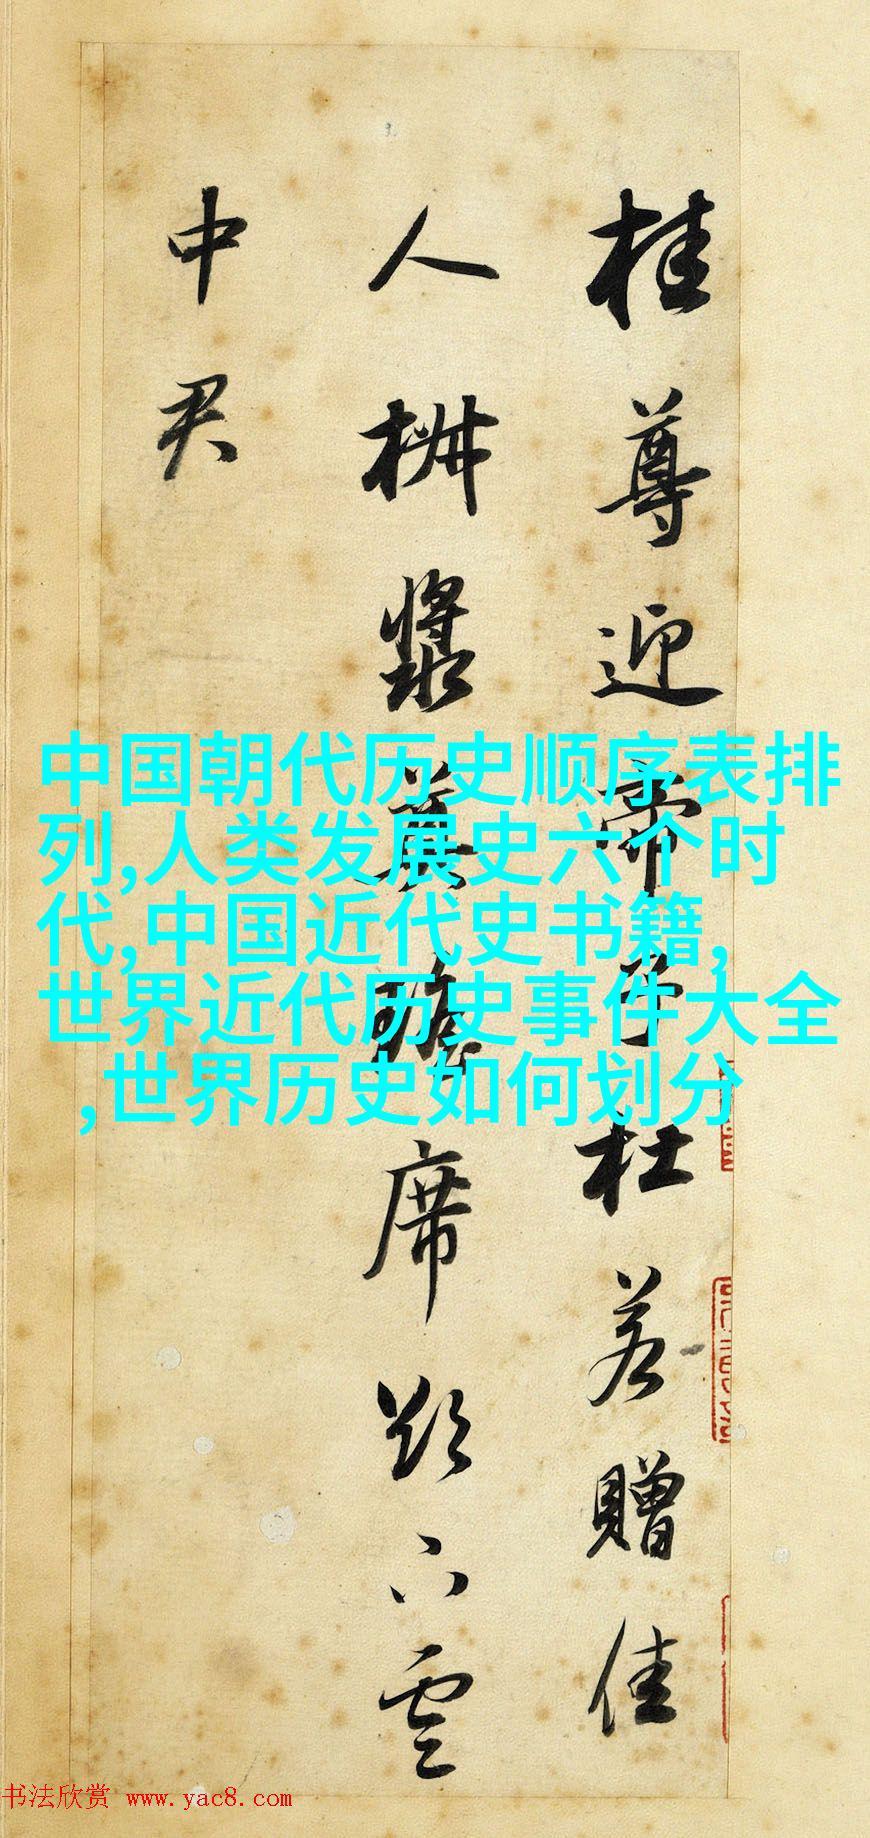 桂尊迎帝子杜若贈佳
人椒漿奠瑤席欲下雲
中君
中国朝代历史顺序表排
列,人类发展史六个时
代,中国近代史书籍,
世界近代历史事件大全
,世界历史如何划分
书法欣赏 www.yac8.com